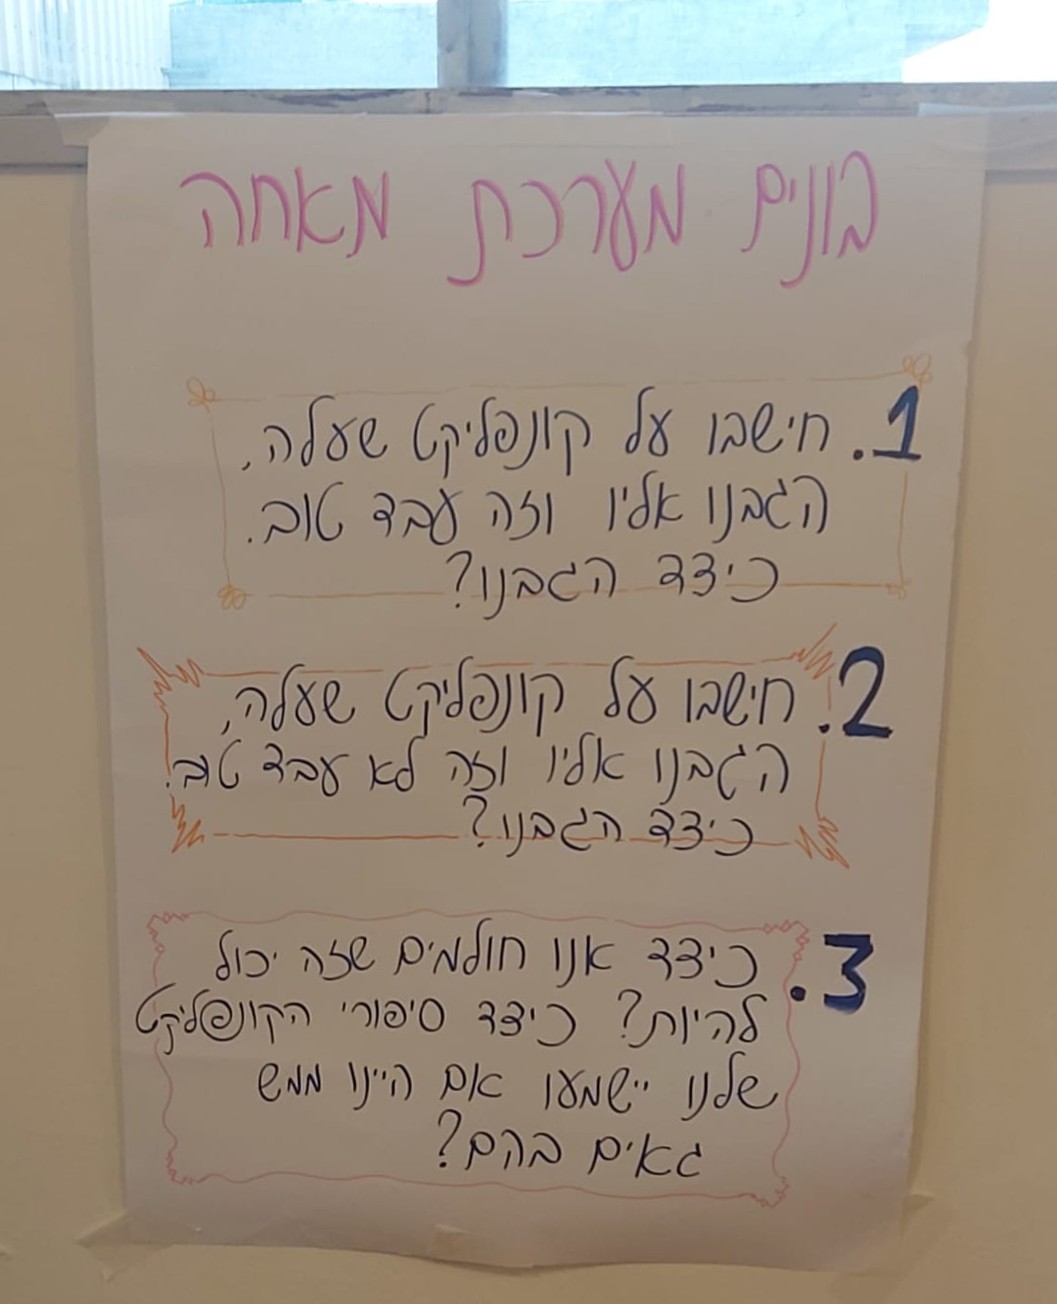 בונים מערכת מאחה
1. חישבו על קונפליקט שעלה,
הגבנו אליו וזה עבד טוב.
כיצד הגבנו?
2. חישבו על קונפליקט שעלה,
הגבנו אליו וזה לא עבד טוב.
כיצד הגבנו?
3. כיצד אנו חולמים שזה יכול
להיות? כיצד סיפורי הקונפליקט
שלנו יישמעו אם היינו ממש
גאים בהם?